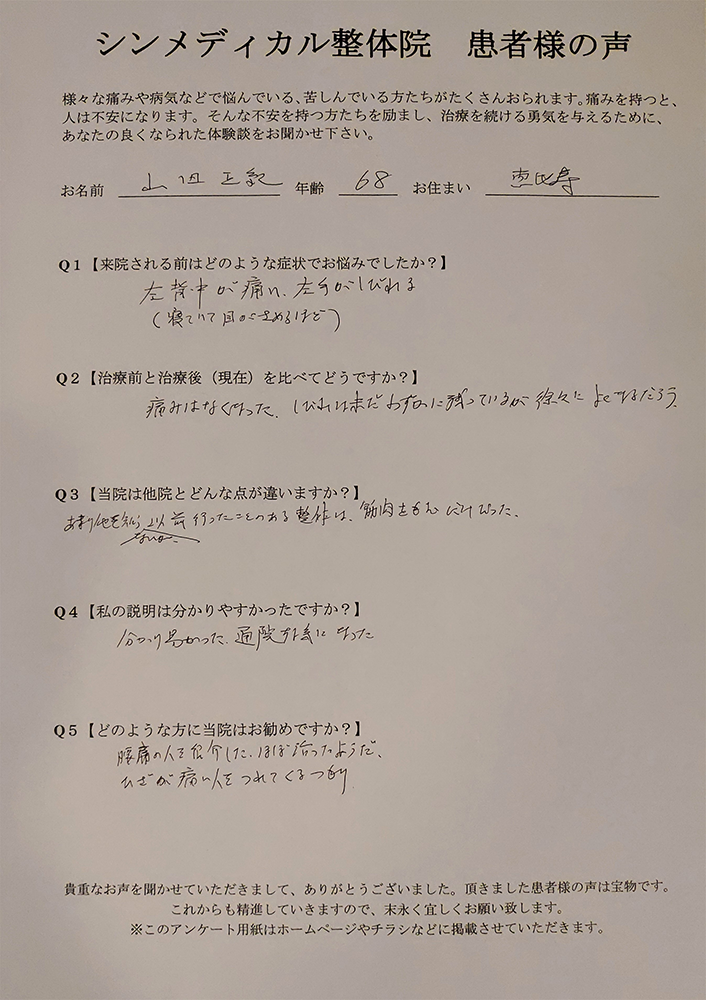 シンメディカル整体院　患者様の声
様々な痛みや病気などで悩んでいる、苦しんでいる方たちがたくさんおられます。痛みを持つと、
人は不安になります。そんな不安を持つ方たちを励まし、治療を続ける勇気を与えるために、
あなたの良くなられた体験談をお聞かせ下さい。
お名前 山 正 年齢 68 お住まい 恵比寿
Q1【来院される前はどのような症状でお悩みでしたか？】
左背中が痛い、左手がしびれる
(寝ていて目がさめるほど)
Q2【治療前と治療後（現在）を比べてどうですか？】
痛みはなくなった、しびれは未だわずかに残っているが徐々によくなるだろう。
Q3【当院は他院とどんな点が違いますか？】
あまり他を知ら 以前行ったことのある整体は、筋肉をもむだけだった、
ないが、
Q4【私の説明は分かりやすかったですか？】
分かり易かった、通院する気になった
Q5【どのような方に当院はお勧めですか？】
腰痛の人を紹介した、ほぼ治ったようだ、
ひざが痛い人をつれてくるつもり
貴重なお声を聞かせていただきまして、ありがとうございました。頂きました患者様の声は宝物です。
これからも精進していきますので、末永く宜しくお願い致します。
※このアンケート用紙はホームページやチラシなどに掲載させていただきます。